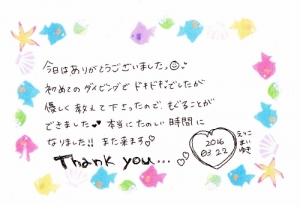 今日はありがとうございました。
初めてのダイビングでドキドキでしたが
優しく教えて下さったので、もぐることが
できました♪ 本当にたのしい時間に
なりました!! また来ます。
Thank you...
2016
03 22
えりこ
まい
ゆき